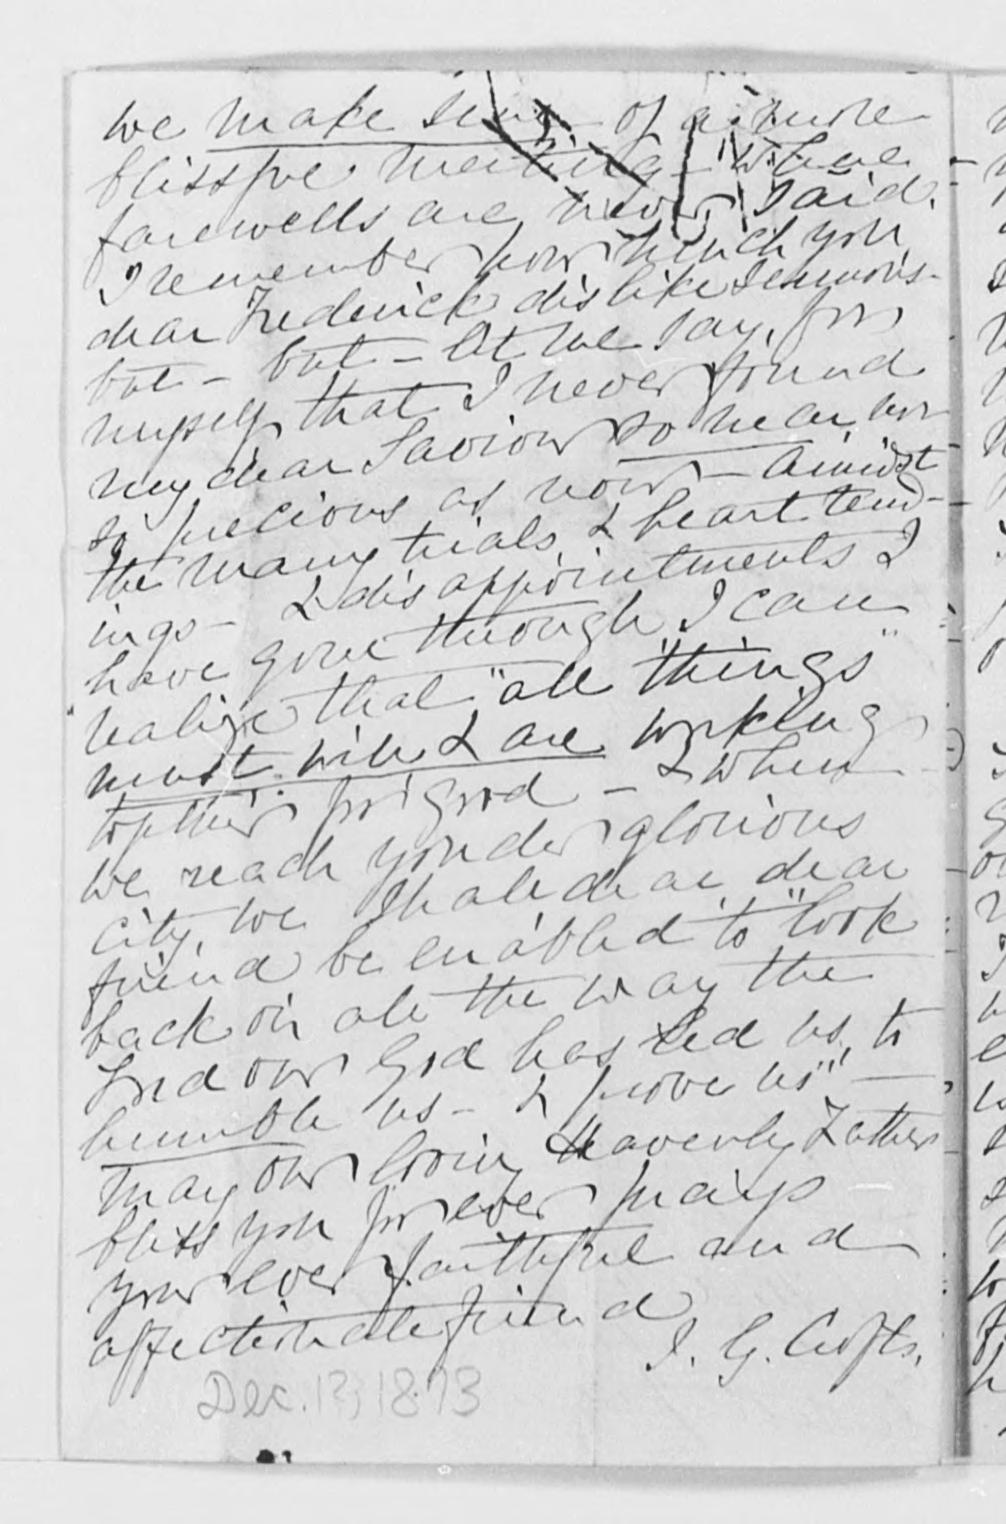 we make sure of a more
blissful meeting - where
farewells are never said.
I remember how much you
dear Frederick dislike sermons -
but - but - let me say, for
myself that I never found
my dear Saviour so near, or
so precious as now - amidst
the many trials, & heart rend-
ings - & disappointments I
have gone through, I can
realize that "all things"
must will & are working
together for good - & when
we reach yonder glorious
city, we shall dear dear
friend be enabled to "look
back on all the way the
Lord our God has led us, to
humble us - & prove us" -
may our loving Heavenly Father
bless you for ever prays
your ever faithful and
affectionate friend
J. G. Crofts.
Dec. 13, 1873